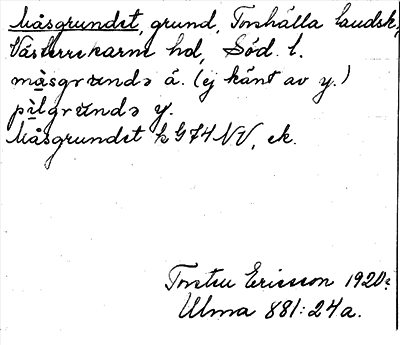 Måsgrundet, grund, Torshälla landsk,
Västerrekarne hd, Söd. l.
må̀sgrundə ä. (ej känt av y.)
pìlgrundə y.
Måsgrundet k G74NV, ek.
Torsten Ericsson 1920:
Ulma 881:24a.